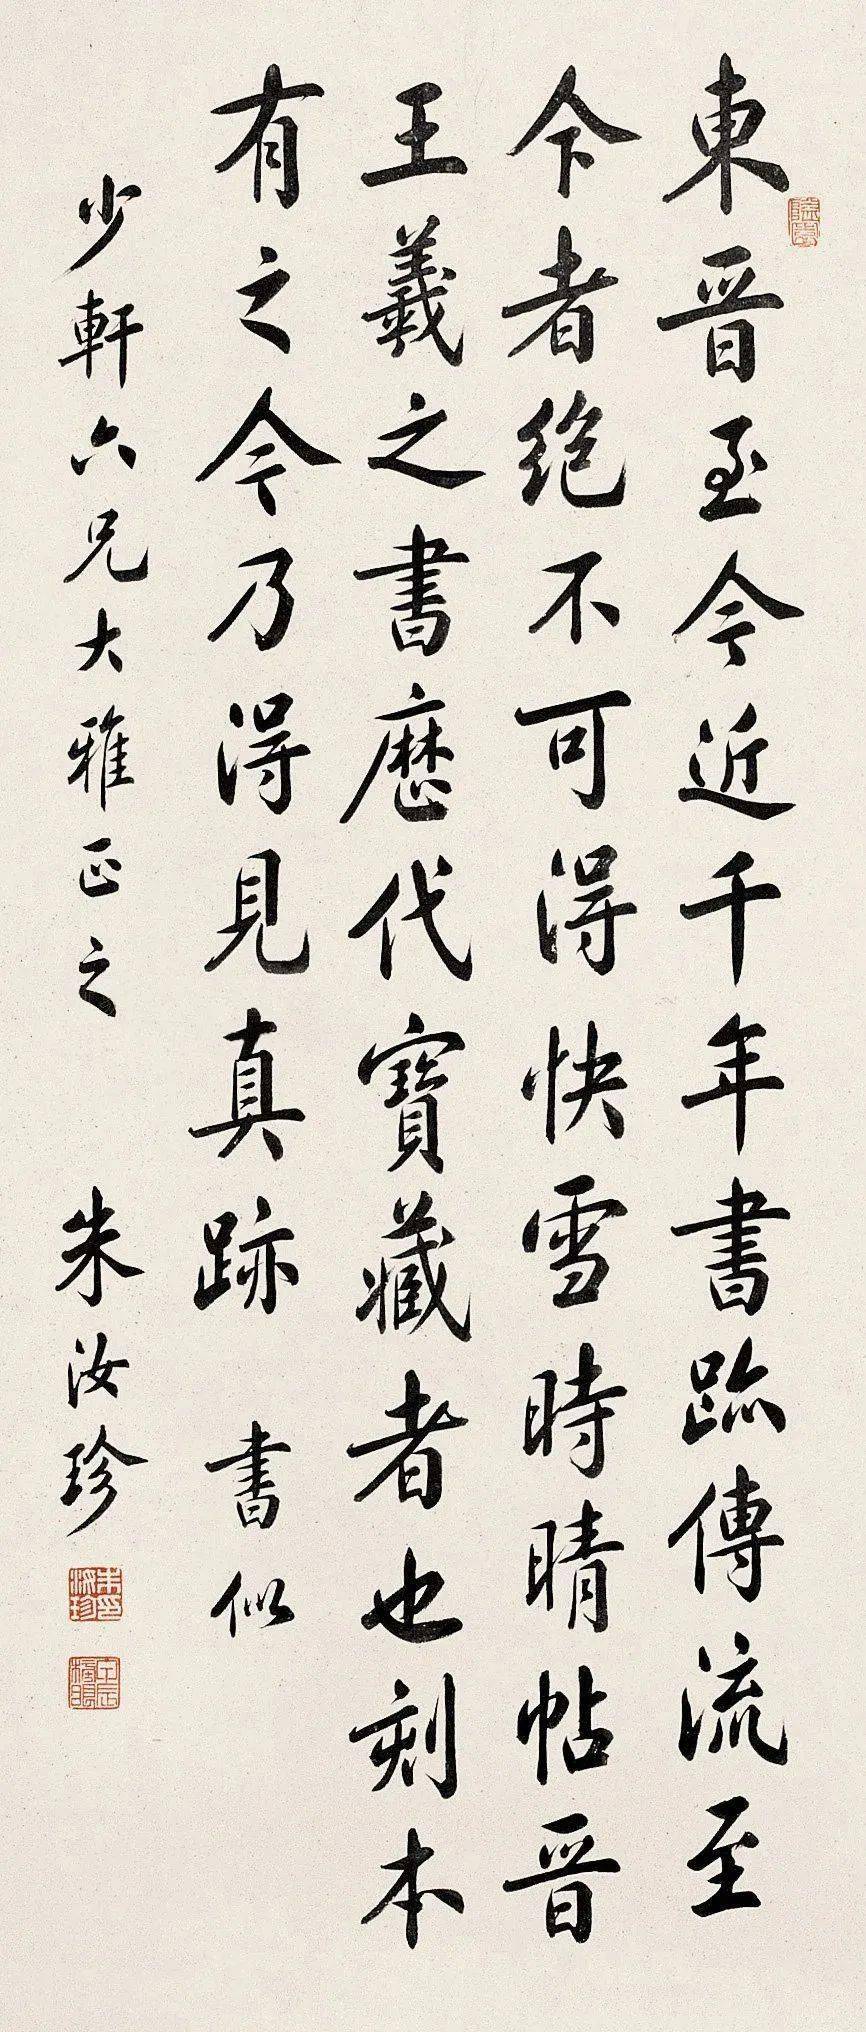 東晋至今近千年書跡傳流至
今者絶不可得快雪時晴帖晋
王羲之書歷代寶藏者也刻本
有之今乃得見真跡 書似
少軒六兄大雅正之 朱汝珍
朱印汝珍
甲辰榜眼